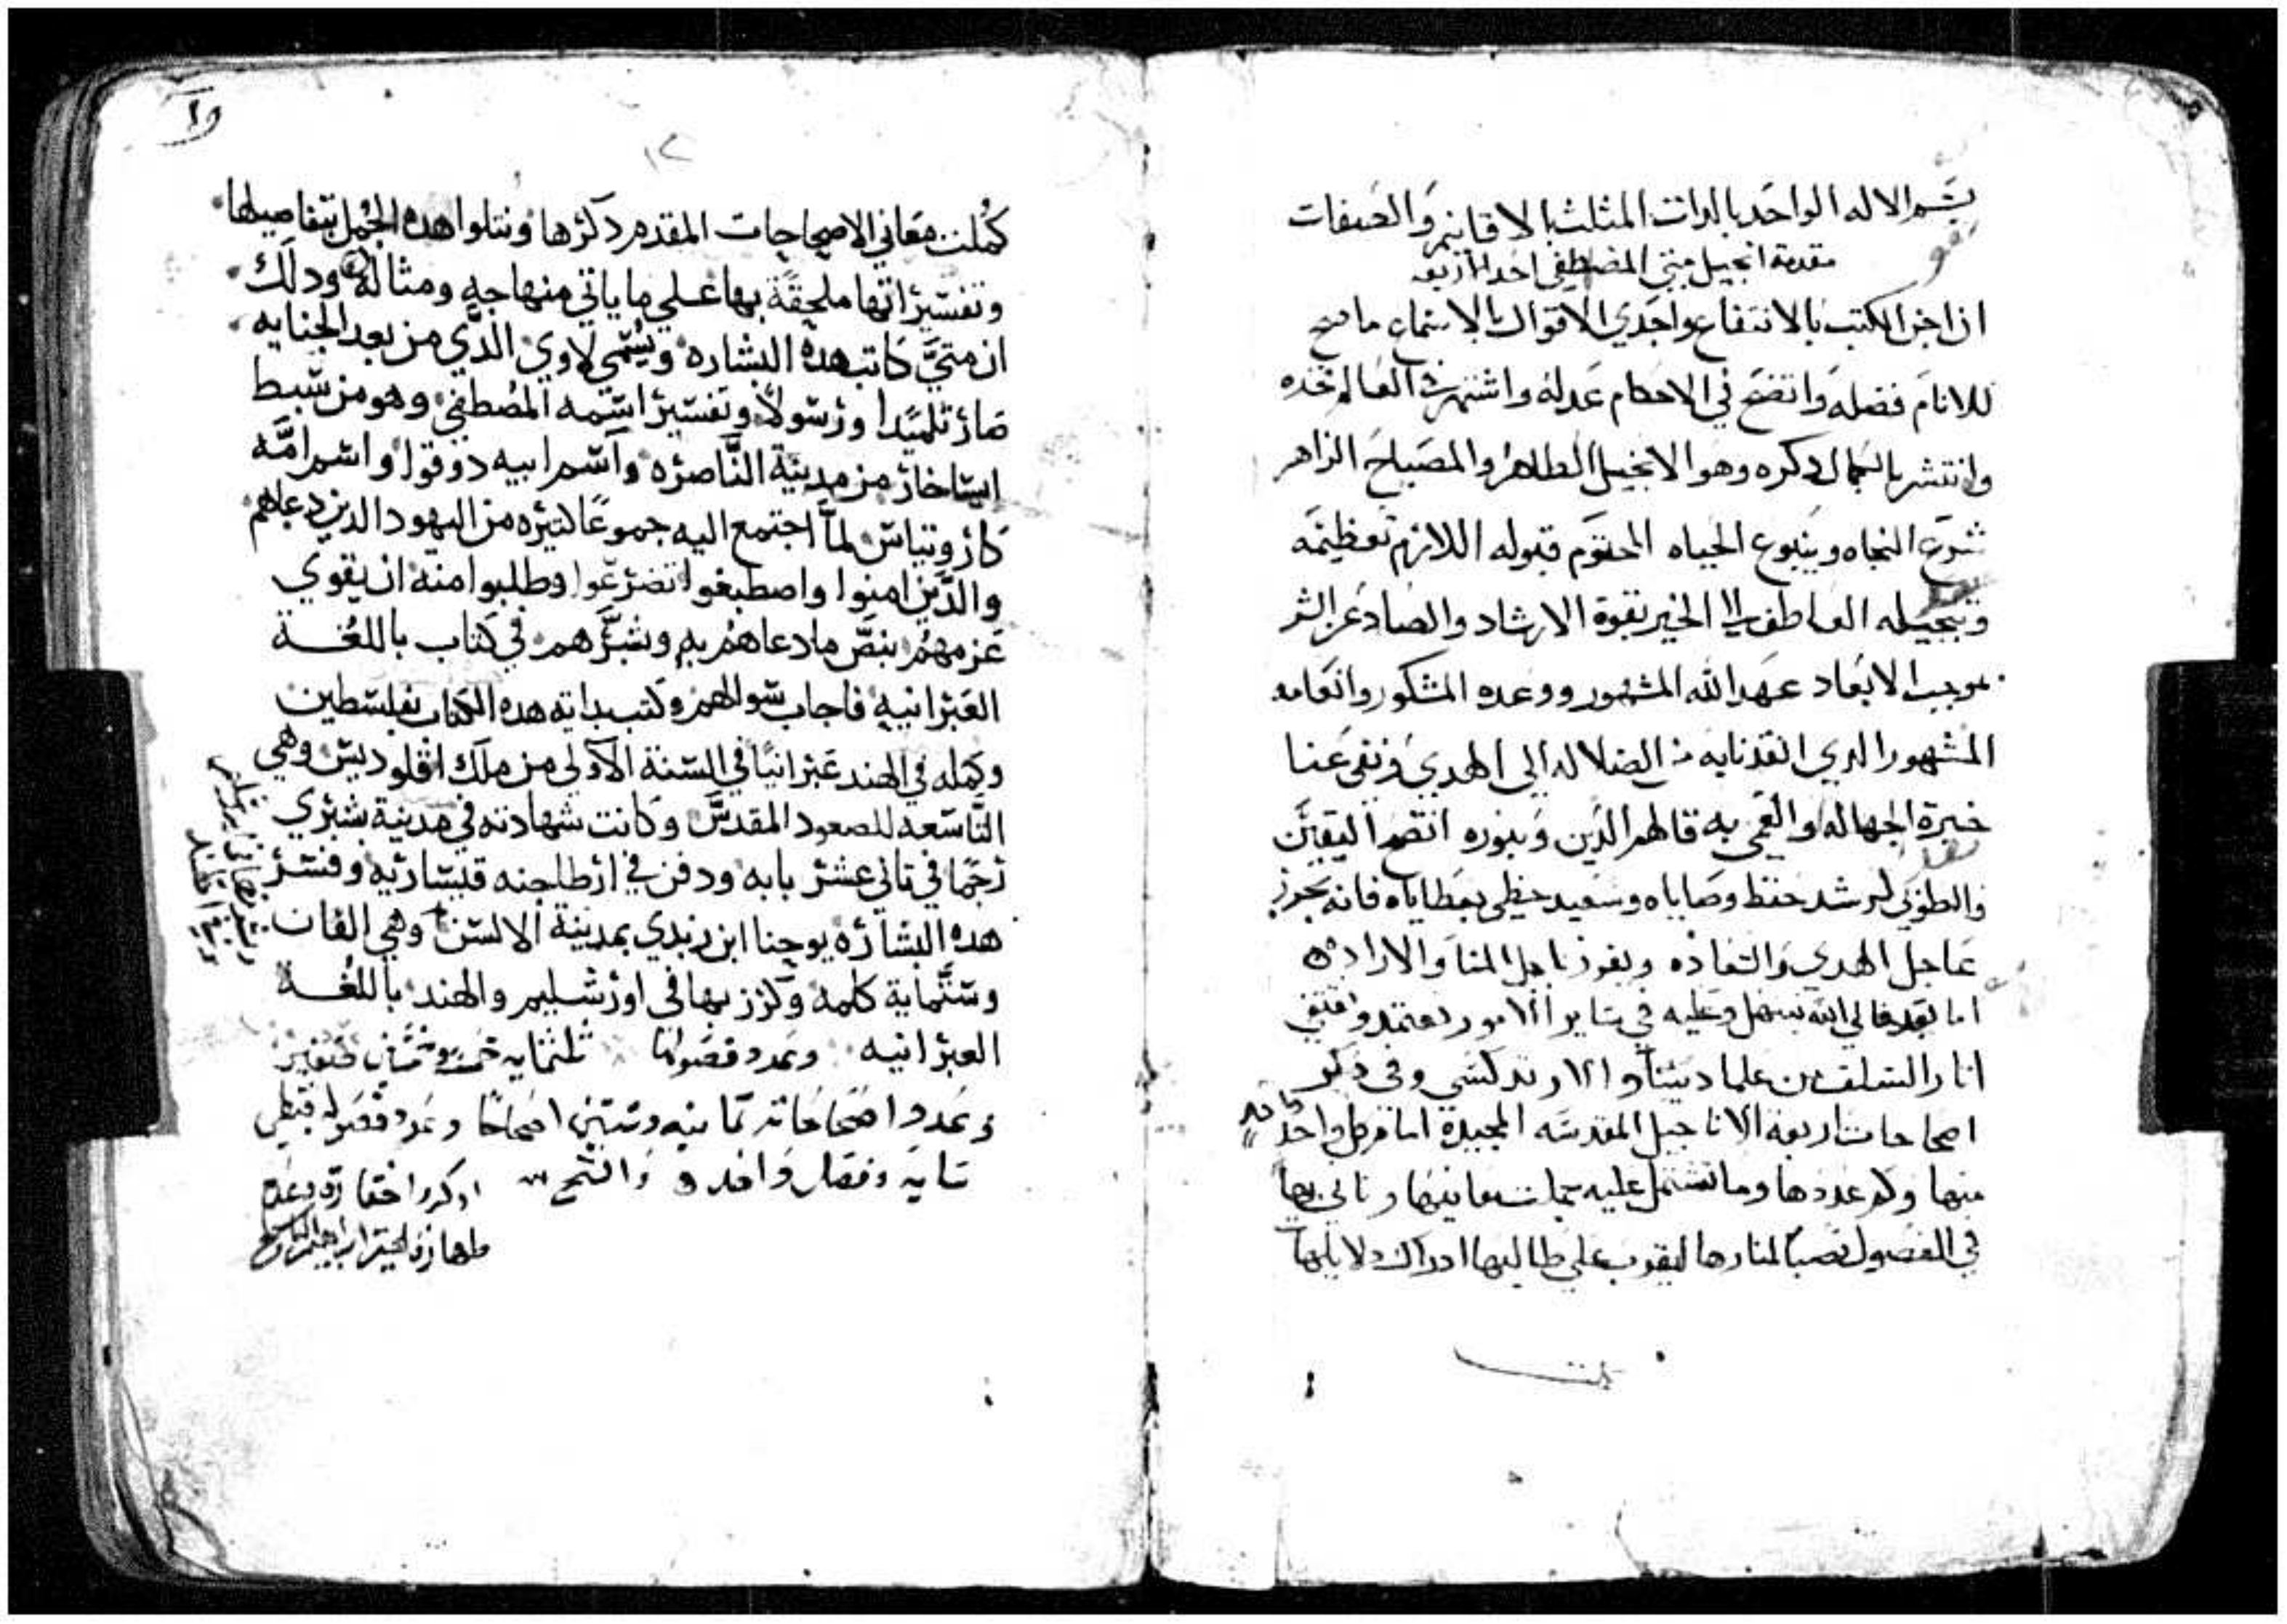 بسم الاله الواحد بالدات المثلث بالاقانيم والصفات
مقدمة انجيل متي المصطفي احد الاربعه
ان اخر الكتب بالانتفاع واجدي الاقوال بالاستماع ما صح
للانام فضله واتضح في الاحكام عدله واشتهر
وانتشر بالجمال دكره وهو الانجيل الطاهر والمصباح الزاهر
النجاه وينبوع الحياه المحتوم قبوله اللازم تعظيمه
وتبجيله العاطف الي الخير بقوة الارشاد والصاد عن الشر
بموجب الابعاد عهد الله المشهور ووعده المشكور وانعامه
المشهور الدي انقدنا به من الضلاله الي الهدي ونفي عنا
حيرة الجهاله والعمي به الدين وبنوره اليقين
والطوبي لمن حفظ وصاياه وسعيد حظي بعطاياه فانه يحوز
عاجل الهدي والسعاده ويفوز باجل المنا والاراده
اما بعد الله وعليه في ساير الامور نعتمد ونقتفي
اثار السلف من علما وفي دكر
اصحاحات اربعة الاناجيل المقدسه المجيده واحد
منها وكم عددها وما تشتمل عليه معانيها بها
في الفصول نصبا لمنارها ليقرب علي طالبها ادراك دلايلها
١٢
كملت معاني الاصحاحات المقدم دكرها ونتلوا هده الجمل بتفاصيلها
وتفسيراتها ملحقة بها علي ما ياتي منهاجه ومثاله ودلك
ان متي كاتب هده البشاره ويسمي لاوي الدي من بعد الجنايه
صار تلميدا ورسولا وتفسير اسمه المصطفي وهو من سبط
ايساخار من مدينة الناصره واسم ابيه دوقوا واسم امه
كاروتياس لما اجتمع اليه جموعا كتيره من اليهود الدين دعاهم
والدين امنوا واصطبغوا تضرعوا وطلبوا منه ان يقوي
عزمهم بنص ما دعاهم به وبشرهم في كتاب باللغـــة
العبرانيه فاجاب سوالهم وكتب بداته هده الكتاب بفلسطين
وكمله في الهند عبرانيا في السنة الاولي من ملك اقلوديس وهي
التاسعه للصعود المقدس وكانت شهادته في مدينة بشبري
رجما في تاني عشر بابه ودفن في ارطاجنه قيساريه وفسر
هده البشاره يوحنا ابن زبدي بمدينة الالسن وهي الفان
وستماية كلمه وكرز بها في اورشليم والهند باللغــة
العبرانيه وعدد فصولها ثلثمايه خمسه صغير
وعدد اصحاحاته تمانيه وستين اصحاحا وعدد فصوله قبطي
مايه وفصل واحد